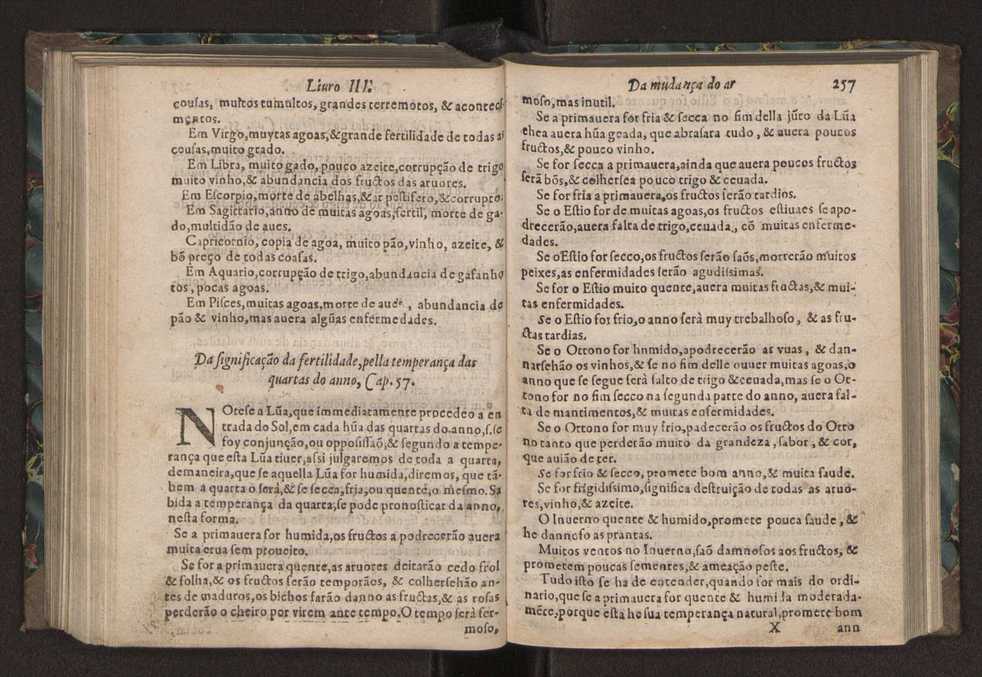 Liuro III.
cousas, muitos tumultos, grandes terremotos, & acontec
mentos.
Em Virgo, muytas agoas, & grande fertilidade de todas as
cousas, muito gado.
Em Libra, muito gado, pouco azeite, corrupção de trigo
muito vinho, & abundancia dos fructos das aruores.
Em Escorpio, morte de abelhas, & ar pestifero, & corrupto.
Em Sagittario, anno de muitas agoas, fertil, morte de ga-
do, multidão de aues.
Capricornio, copia de agoa, muito pão, vinho, azeite, &
bõ preço de todas cousas.
Em Aquario, corrupção de trigo, abundancia de gafanho
tos, poucas agoas.
Em Pisces, muitas agoas, morte de aues, abundancia de
pão & vinho, mas auera algũas enfermedades.
Da significação da fertilidade, pella temperança das
quartas do anno, Cap. 57.
NOtese a Lũa, que immediatamente procedeo a en
trada do Sol, em cada hũa das quartas do anno, s. se
foy conjunção, ou oppossissaõ, & segundo a tempe-
rança que esta Lũa tiuer, assi julgaremos de toda a quarta,
demaneira, que se aquella Lũa for humida, diremos, que tã-
bem a quarta o será, & se secca, fria, ou quente, o mesmo. Sa
bida a temperança da quarta, se pode pronosticar da anno,
nesta forma.
Se a primauera for humida, os fructos a podrecerão auera
muita erua sem proueito.
Se for a primauera quente, as aruores deitarão cedo frol
& folha, & os fructos serão temporãos, & colhersehão an-
tes de maduros, os bichos farão danno as fructas, & as rosas
perderão o cheiro por virem ante tempo, O tempo será fer-
moso,
Da mudança do ar 257
moso, mas inutil.
Se a primauera for fria & secca no fim della jũto da Lũa
chea auera hũa geada, que abrasara tudo, & auera poucos
fructos, & pouco vinho.
Se for secca a primauera, ainda que auera poucos fructos
serã bõs, & colhersea pouco trigo & ceuada.
Se for fria a primauera, os fructos serão tardios.
Se o Estio for de muitas agoas, os fructos estiuaes se apo-
drecerão, auera falta de trigo, ceuada, cõ muitas enferme-
dades.
Se o Estio for secco, os fructos serão saõs, morrerão muitos
peixes, as enfermidades serão agudissimas.
Se for o Estio muito quente, auera muitas fructas, & mui-
tas enfermidades.
Se o Estio for frio, o anno será muy trebalhoso, & as fru-
ctas tardias.
Se o Ottono for humido, apodrecerão as vuas, & dan-
narsehão os vinhos, & se no fim delle ouuer muitas agoas, o
anno que se segue será falto de trigo & ceuada, mas se o Ot-
tono for no fim secco na segunda parte do anno, auera fal-
ta de mantimentos, & muitas enfermidades.
Se o Ottono for muy frio, padecerão os fructos do Otto
no tanto que perderão muito da grandeza, sabor, & cor,
que auião de ter.
Se for frio & secco, promete bom anno, & muita saude.
Se for frigidissimo, significa destruição de todas as aruo-
res, vinho, & azeite.
O Inuerno quente & humido, promete pouca saude, &
he dannoso as prantas.
Muitos ventos no Inuerno, saõ damnosos aos fructos, &
prometem poucas sementes, & ameação peste.
Tudo isto se ha de entender, quando for mais do ordi-
nario, que se a primauera for quente & humida moderada-
mẽte, porque esta he sua temperança natural, promete bom
X ann